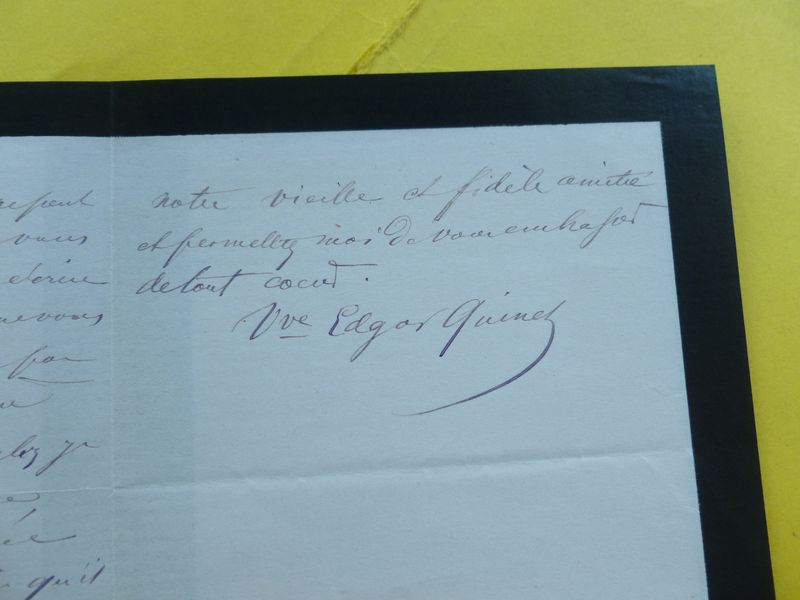 vous
écrire
vous
par
je
ée
qu'il
notre vieille et fidèle amitié
et permettez moi de vous embrasser
de tout coeur.
Vve Edgar Quinet